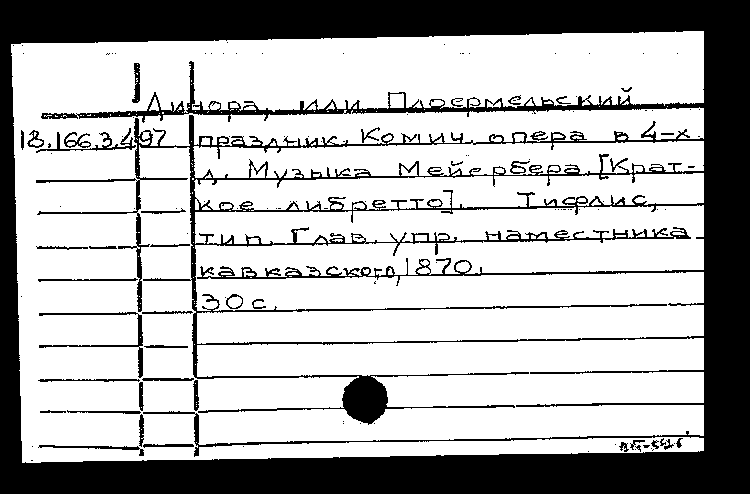 Динора, или Плоермельский
18.166.3.497 праздник. Комич. опера в 4-х
д. Музыка Мейербера. [Крат-
кое либретто]. Тифлис,
тип. Глав. упр. наместника
кавказского, 1870.
30 с.